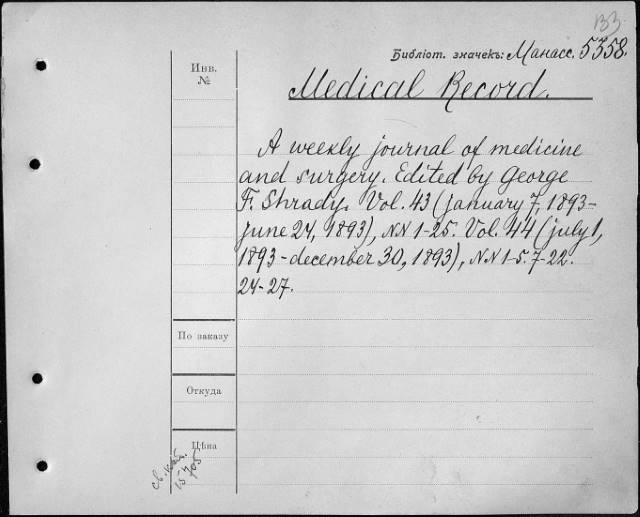 133
Библіот. значекъ: Манасс. 5358.
Инв.
№
Medical Record.
A weekly journal of medicine
and surgery. Edited by George
F. Shrady. Vol. 43 (january 7, 1893-
june 24, 1893), NN 1-25. Vol. 44 (july 1,
1893-december 30, 1893), NN 1-5. 7-22.
24-27.
По заказу
Откуда
Цѣна